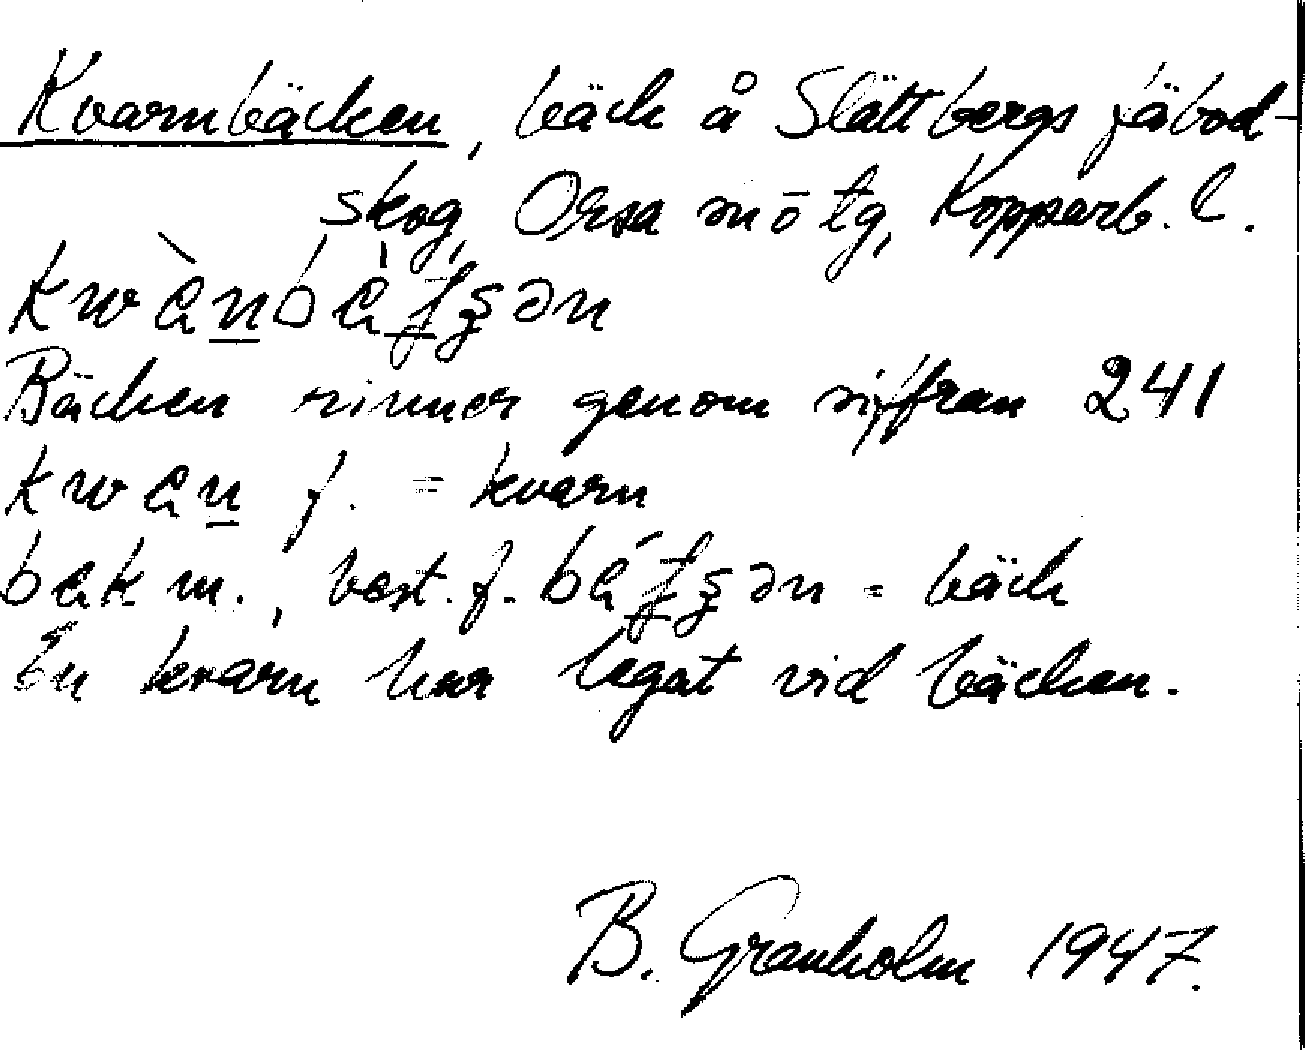 Kvarnbäcken, bäck å Slättbergs fäbod-
skog, Orsa m o tg, Kopparb. l.
Bäcken rinner genom siffran 241
f. = kvarn
bak m., best. f. = bäck
En kvarn har legat vid bäcken.
B. Granholm 1947.